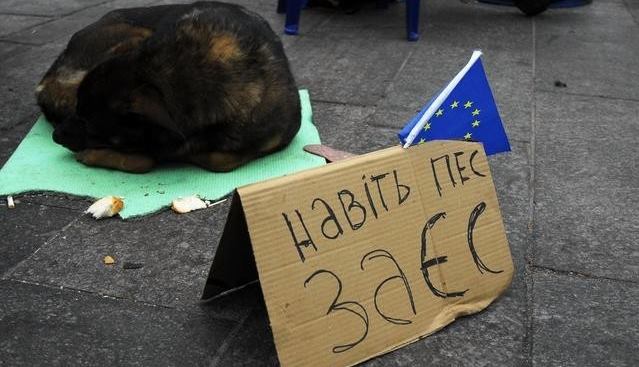 навіть пес
заєс